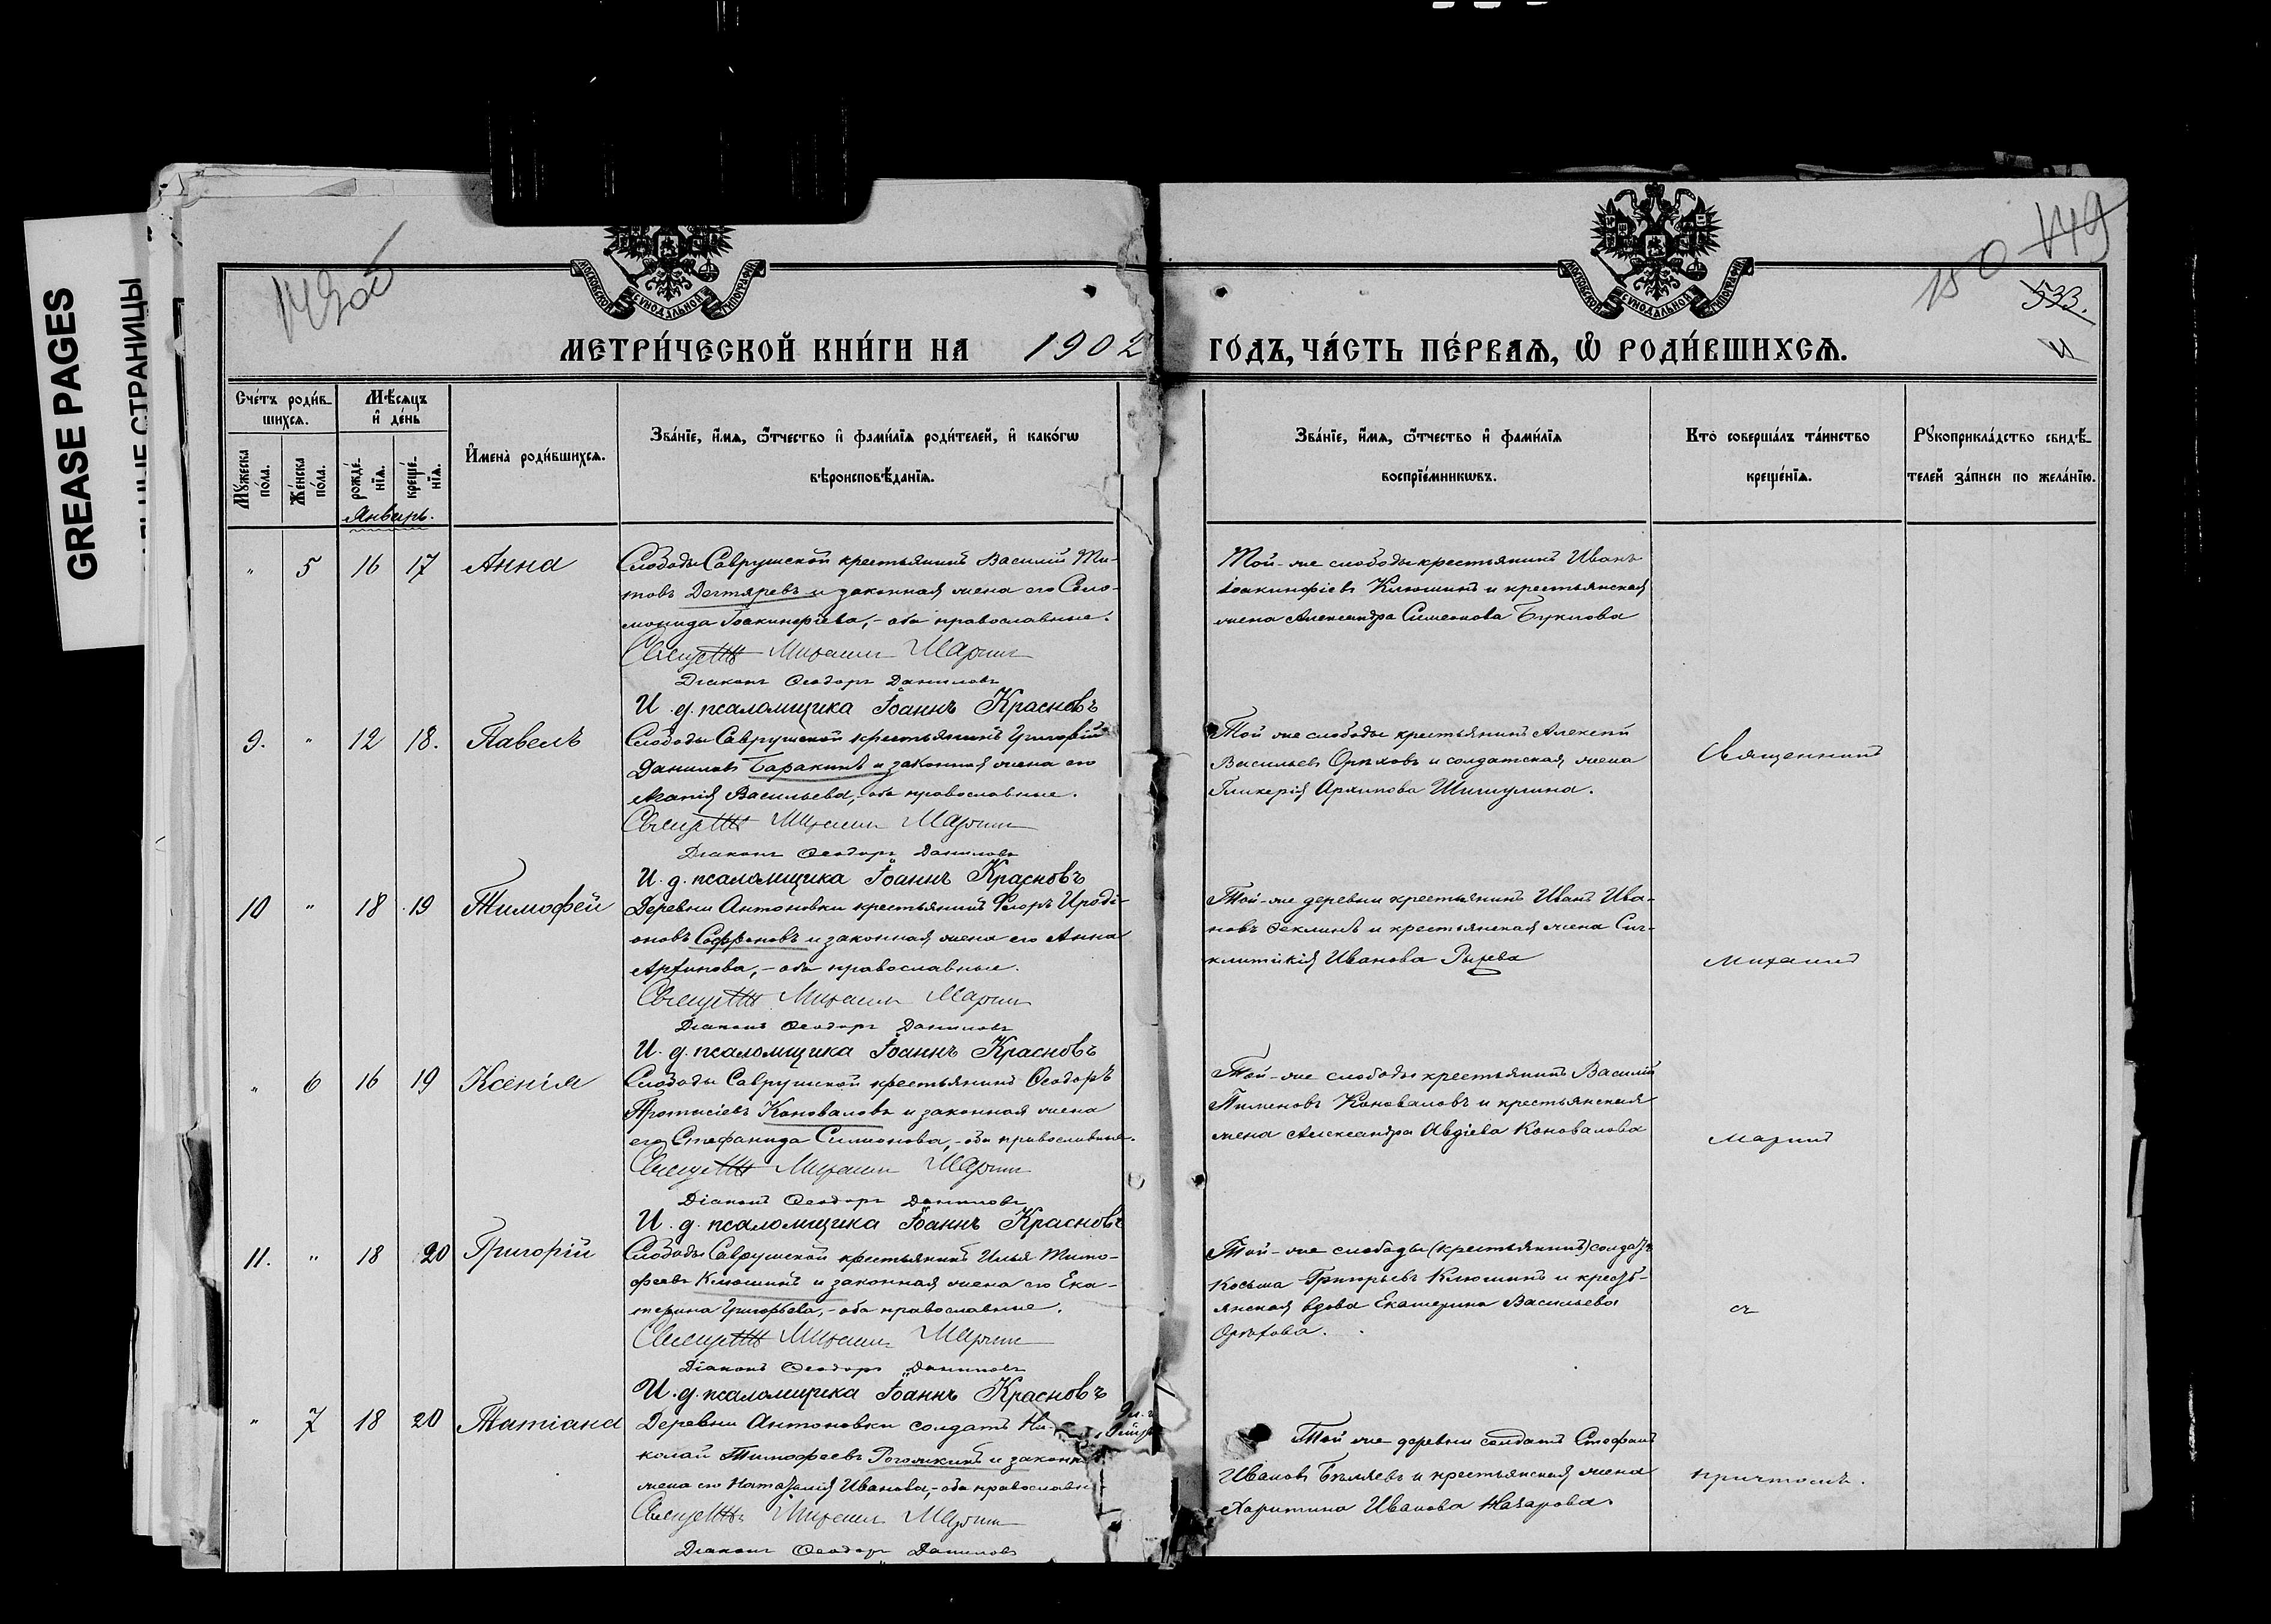 GREASE PAGES
СТРАНИЦЫ
149об
150 149
533.
МОСКОВСКОЙ СѴНОДАЛЬНОЙ ТИПОГРАФІИ
МОСКОВСКОЙ СѴНОДАЛЬНОЙ ТИПОГРАФІИ
МЕТРИ́ЧЕСКОЙ КНИ́ГИ НА 1902 ГО́ДЪ, ЧА́СТЬ ПЕ́РВАѦ, Ѡ҆ РОДИ́ВШИХСѦ.
Сче́тъ роди́в-
шихсѧ.
Мꙋ́жеска по́ла.
Же́нска по́ла.
Мѣ́сѧцъ и҆ де́нь
рожде́-нїѧ.
креще́-нїѧ.
Январь.
И҆мена̀ роди́вшихсѧ.
Зва́нїе, и҆́мѧ, ѻ҆́тчество и҆ фами́лїѧ роди́телей, и҆ како́гѡ
вѣроисповѣ́данїѧ.
Зва́нїе, и҆́мѧ, ѻ҆́тчество и҆ фами́лїѧ
воспрїе́мникѡвъ.
Кто̀ соверша́лъ та́инство
креще́нїѧ.
Рꙋкоприкла́дство свидѣ́-
телей за́писи по жела́нїю.
" 5 16 17 Анна
Слободы Саврушской крестьянинъ Василій Ти-
товъ Дегтяревъ и законная жена его Соло-
монида Іоакинфіева,- оба православные.
Священ Михаилъ Маринъ
Діаконъ Ѳеодоръ Даниловъ
И. д. псаломщика Іоаннъ Красновъ
Той-же слободы крестьянинъ Иванъ
Іоакинфіевъ Клюшинъ и крестьянская
жена Александра Симеонова Буклова
9. " 12 18. Павелъ
Слободы Саврушской крестьянинъ Григорій
Даниловъ Баракинъ и законная жена его
Агапія Васильева,- оба православные.
Священ Михаилъ Маринъ
Діаконъ Ѳеодоръ Даниловъ
И. д. псаломщика Іоаннъ Красновъ
Той же слободы крестьянинъ Алексей
Васильевъ Орѣховъ и солдатская жена
Гликерія Архипова Шишулина.
Священникъ
10 " 18 19 Тимофей
Деревни Антоновки крестьянинъ Флоръ Ироді-
оновъ Софроновъ и законная жена его Анна
Архипова,- оба православные.
Священ Михаилъ Маринъ
Діаконъ Ѳеодоръ Даниловъ
И. д. псаломщика Іоаннъ Красновъ
Той-же деревни крестьянинъ Иванъ Ива-
новъ Ѳеклинъ и крестьянская жена Син-
клитікія Иванова Рыжева
Михаилъ
" 6 16 19 Ксенія
Слободы Саврушской крестьянинъ Ѳеодоръ
Протасіевъ Коноваловъ и законная жена
его Стефанида Симонова,- оба православные.
Священ Михаилъ Маринъ
Діаконъ Ѳеодоръ Даниловъ
И. д. псаломщика Іоаннъ Красновъ
Той-же слободы крестьянинъ Василій
Пименовъ Коноваловъ и крестьянская
жена Александра Авдіева Коновалова
Маринъ
11. " 18 20 Григорій
Слободы Саврушской крестьянинъ Илья Тимо-
феевъ Клюшинъ и законная жена его Ека-
терина Григорьева,- оба православные.
Священ Михаилъ Маринъ
Діаконъ Ѳеодоръ Даниловъ
И. д. псаломщика Іоаннъ Красновъ
Той-же слободы (крестьянинъ) солдатъ
Косьма Григорьевъ Клюшинъ и кресть-
янская вдова Екатерина Васильева
Орѣхова.
съ
" 7 18 20 Татіана
Деревни Антоновки солдатъ Ни-
колай Тимофеевъ Рогожкинъ и законн
жена его Наталія Иванова,- оба православн
Священ Михаилъ Маринъ
Діаконъ Ѳеодоръ Даниловъ
Той же деревни солдатъ Стефанъ
Ивановъ Бѣляевъ и крестьянская жена
Харитина Иванова Назарова.
причтомъ.